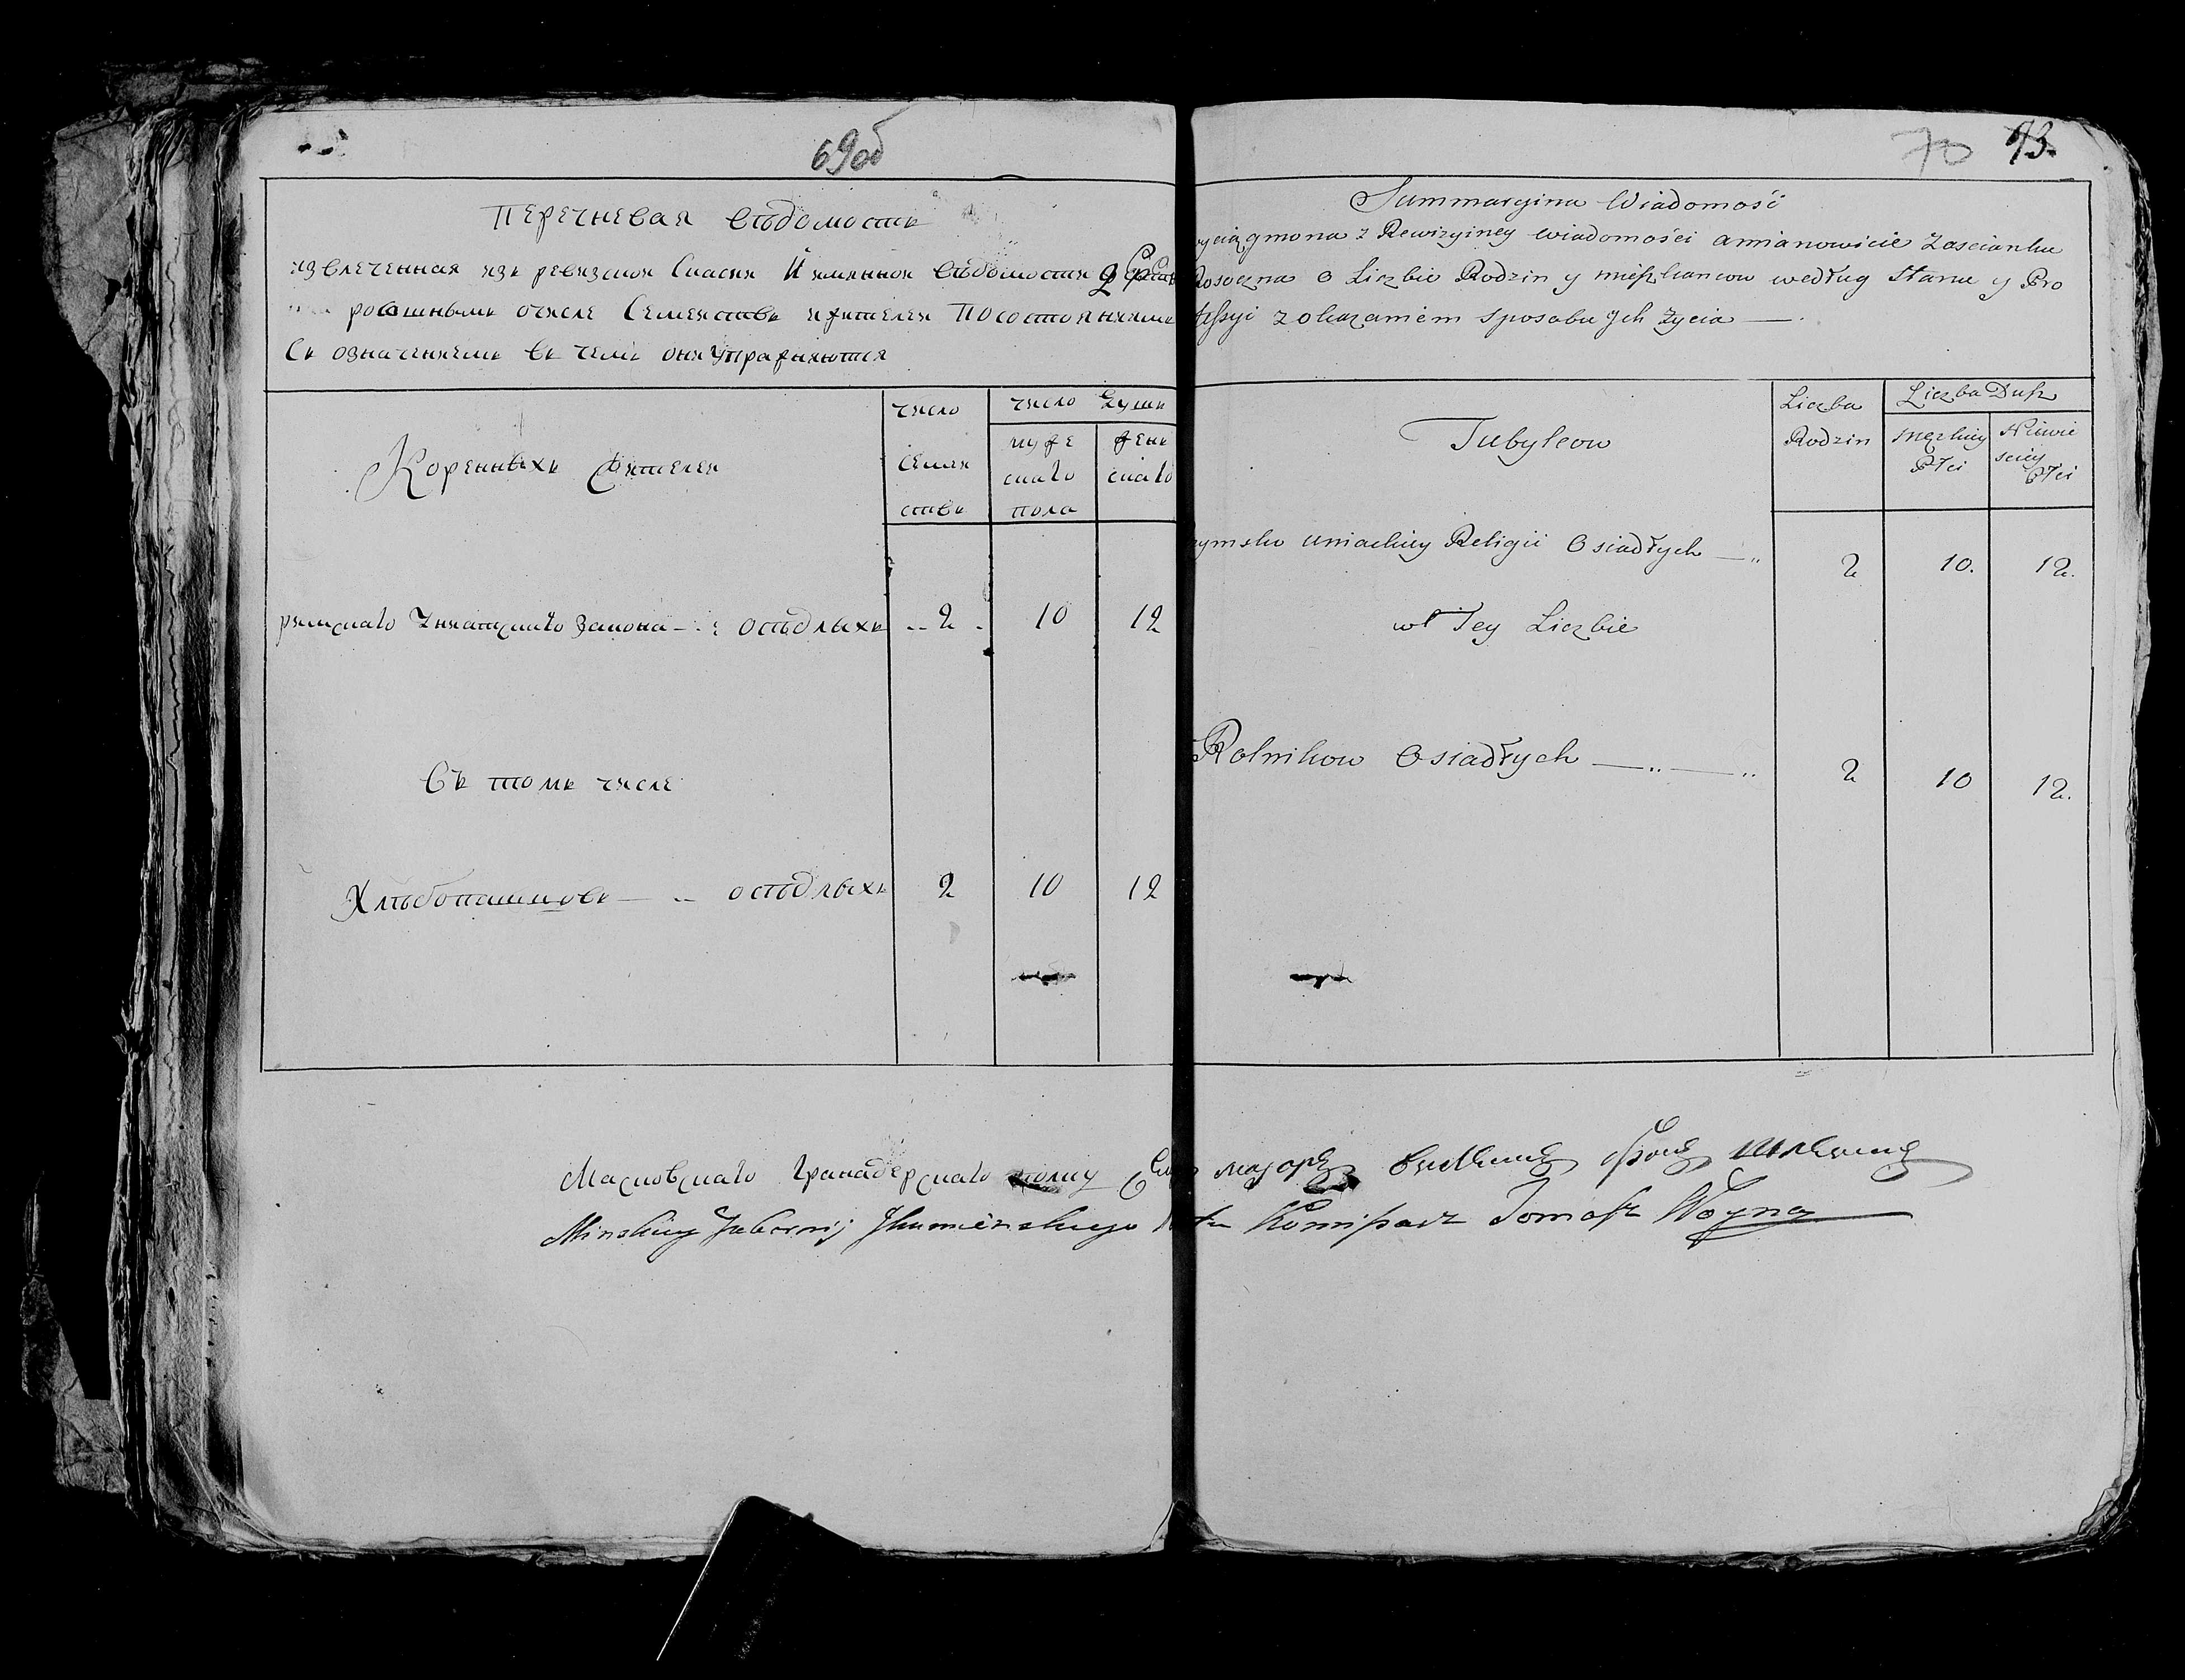 69об
Перечневая вѣдомость
извлеченная изъ ревизкои Сказки И имянной вѣдомости
о числѣ Семействъ и жителей По состояниямъ
Съ означениемъ въ чемъ они упражняются
Коренныхъ Жителей
число семействъ
число душъ
мужескаго пола
женскаго
римскаго Униатскаго закона осѣдлыхъ 2 10 12
Въ томъ числѣ
Хлѣбопашцовъ осѣдлыхъ 2 10 12
70 93.
Summaryina Wiadomość
wyciągmona z Rewizyiney wiadomości amianowicie Zascianku
Rosoczna O Liczbie Rodzin y mieszkancow według Stanu y Pro
fessyi z okazaniem sposobu Jch życia
Tubylcow
Liczba Rodzin
Liczba Dusz
Męzkiey Płci
Niewiesciey Płci
Rzymsko uniackiey Religii Osiadłych 2 10. 12.
w Tey Liczbie
Rolnikow Osiadłych 2 10 12.
Московскаго Гранадерскаго полку маіоръ фонъ
Minskiey Gubernij Jhumienskiego Komissarz Tomasz Woyna